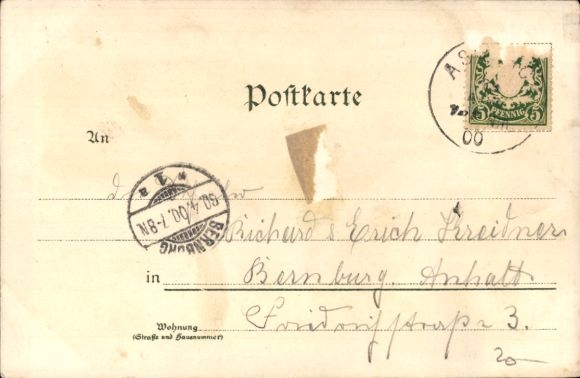 Postkarte
AS
5 PFENNIG 5
00
An
1
a
30.4.00.7-8N.
BERNBURG
Richard & Erich Kreidner
in Bernburg. Anhalt
Friedrichstraße 3.
Wohnung
(Straße und Hausnummer)
20